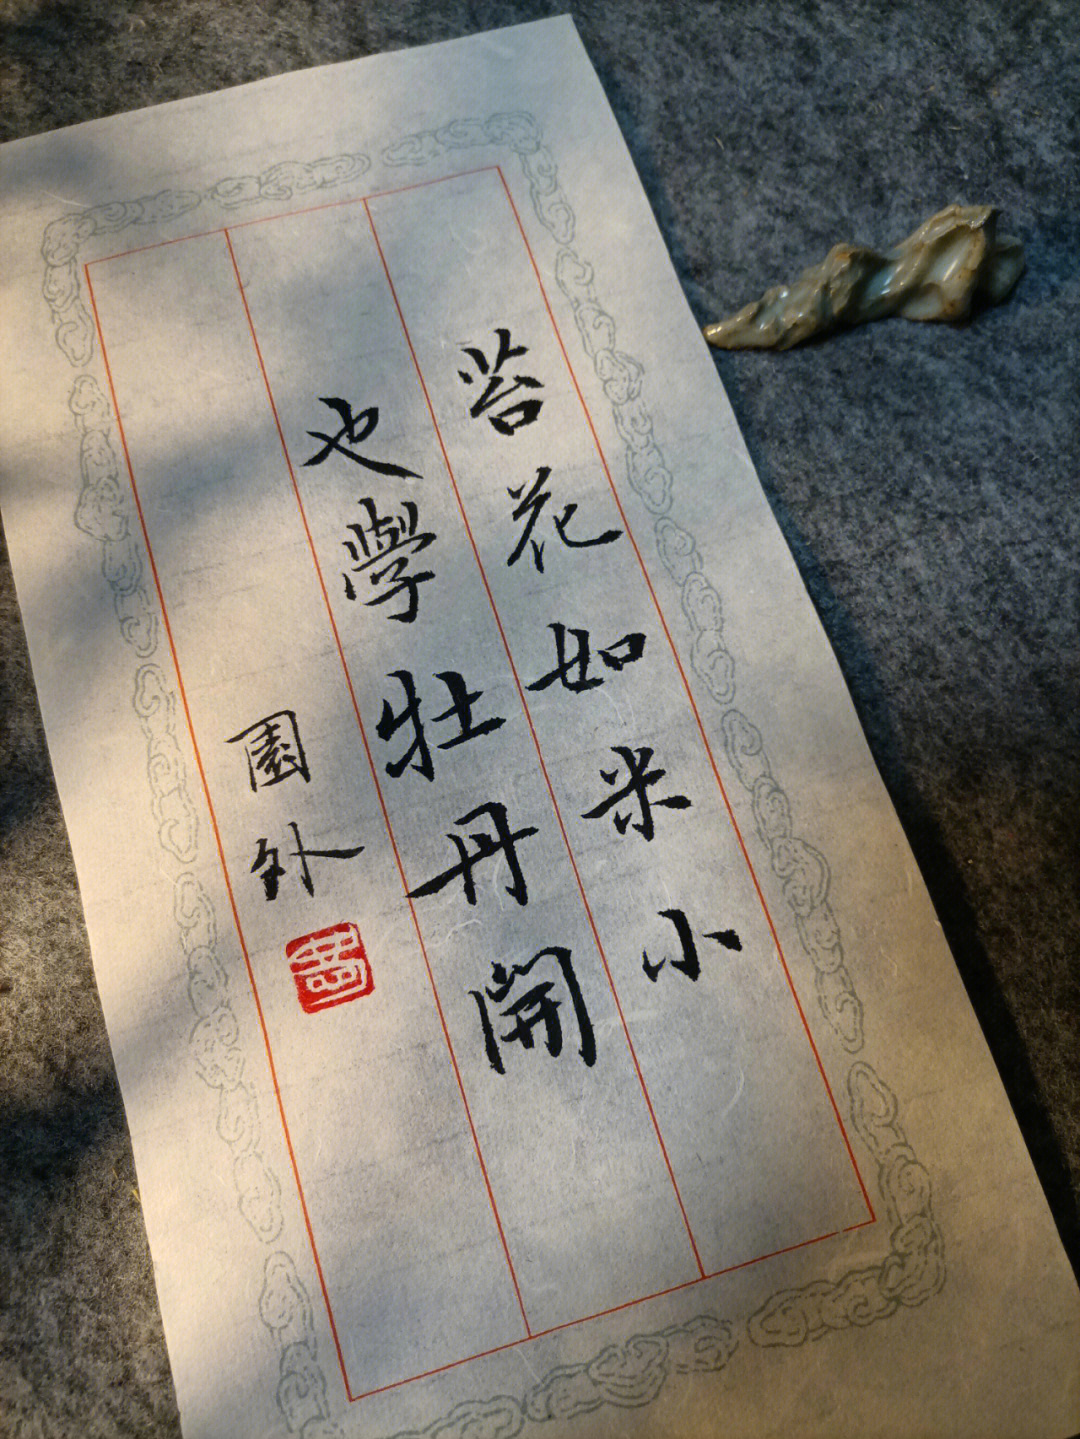 苔花如米小
也學牡丹開
園外